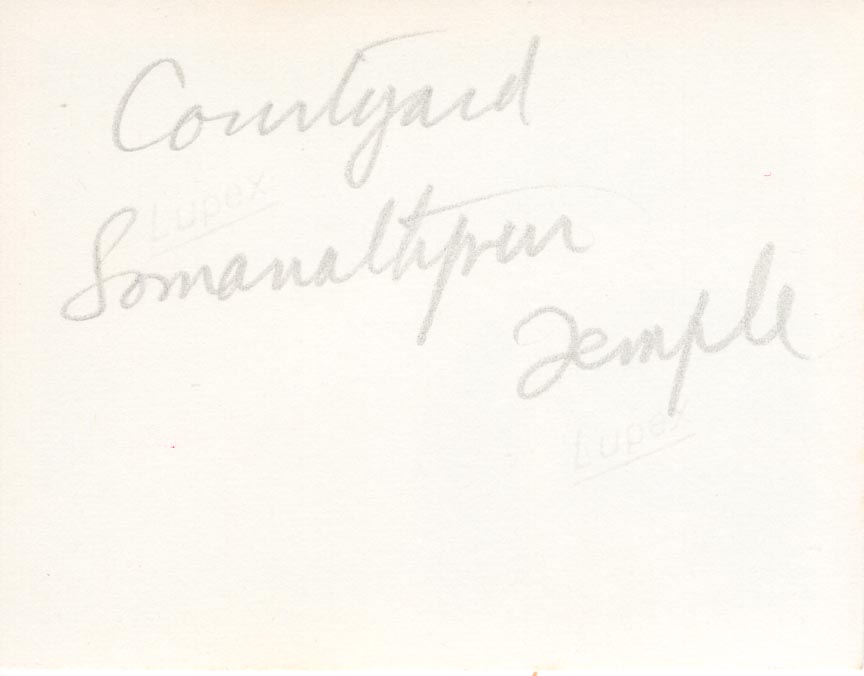 Courtyard
Lupex
Somanathpur
Temple
Lupex